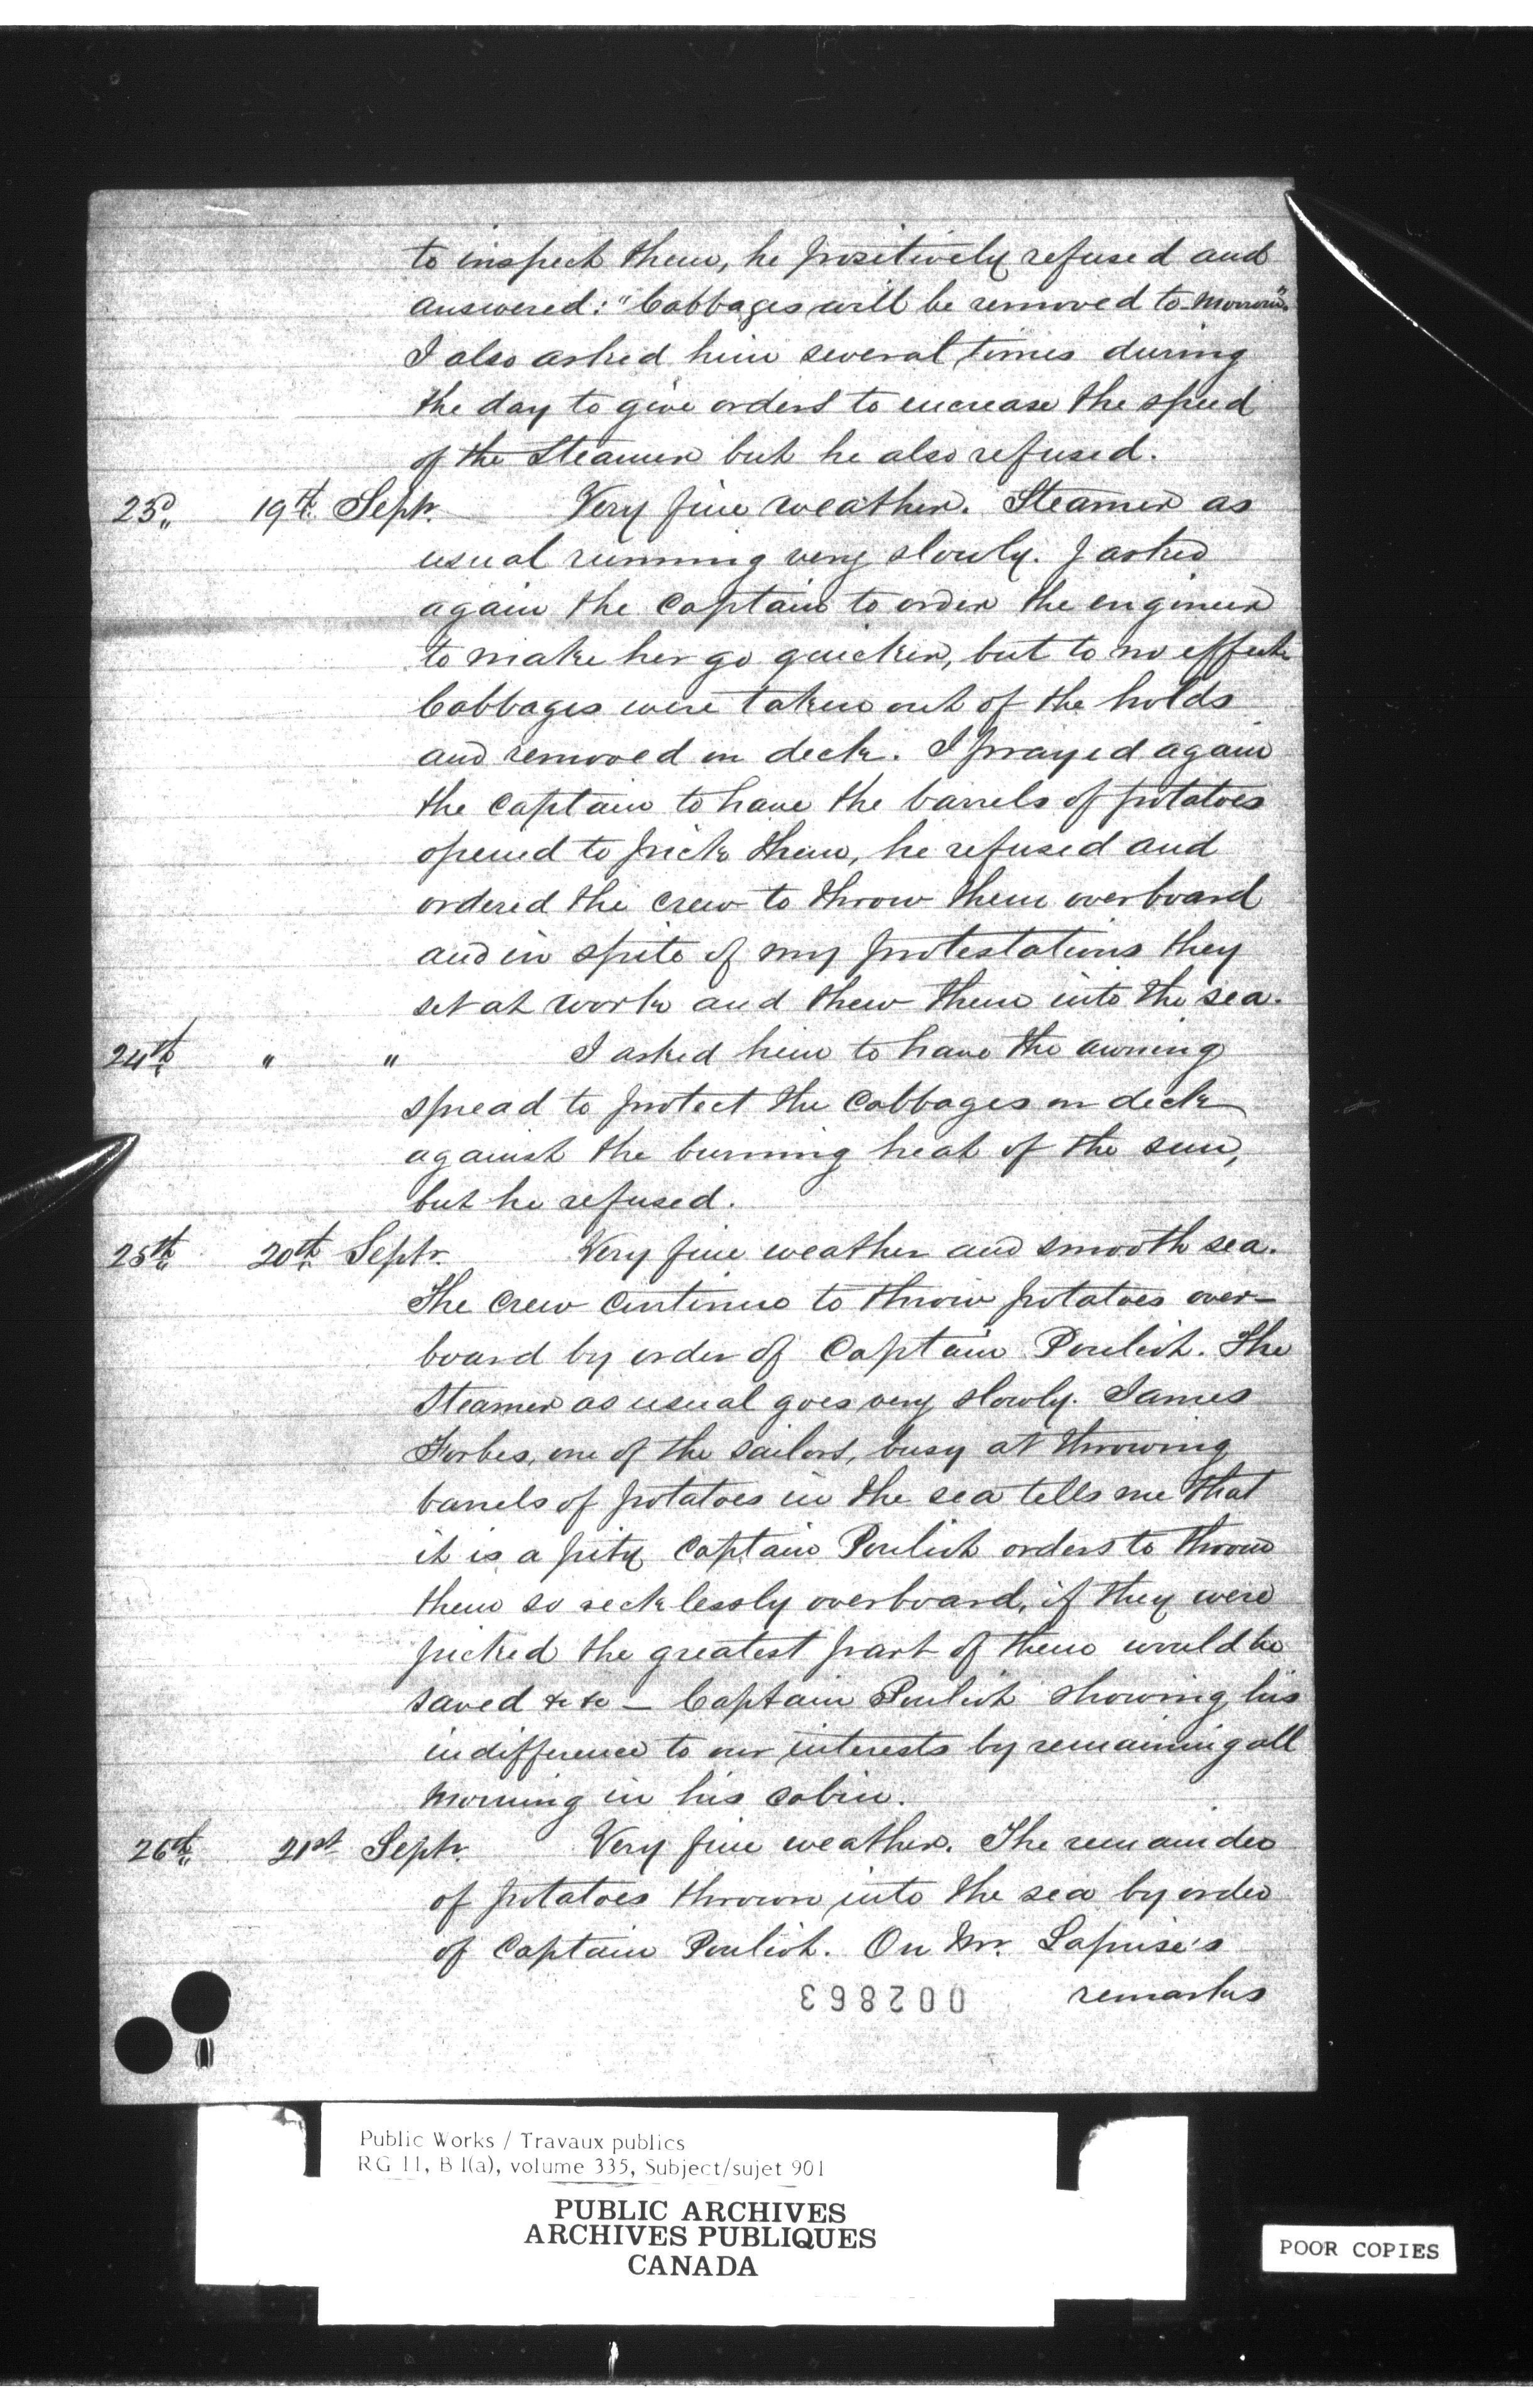 to inspect them, he positively refused and
answered: "Cabbages will be removed to-morrow".
I also asked him several times during
the day to give orders to encrease the speed
of the Steamer but he also refused.
23d,, 19th Septr. Very fine weather. Steamer as
usual running very slowly. I asked
again the Captain to order the engineer
to make her go quicker, but to no effect
Cabbages were taken out of the holds
and removed on deck. I prayed again
the Captain to have the barrels of potatoes
opened to pick them, he refused and
ordered the crew to throw them overboard
and in spite of my protestations they
set at work and thew them into the sea.
24th " " I asked him to have the awning
spread to protect the Cabbages on deck
against the burning heat of the sun,
but he refused.
25th 20th Septr. Very fine weather and smooth sea.
The Crew continue to throw potatoes over-
board by order of Captain Pouliot. The
Steamer as usual goes very slowly. James
Forbes, one of the sailors, busy at throwing
barrels of potatoes in the sea tells me that
it is a pity Captain Pouliot orders to throw
them so recklessly overboard, if they were
picked the greatest part of them would be
saved &c &c — Captain Pouliot showing his
indifference to our interests by remaining all
morning in his cabin.
26th,, 21st Septr. Very fine weather. The remainder
of potatoes thrown into the sea by order
of Captain Pouliot. On Mr. Laprise's
remarks
002863
Public Works / Travaux publics
RG 11, B 1(a), volume 335, Subject/sujet 901
PUBLIC ARCHIVES
ARCHIVES PUBLIQUES
CANADA
POOR COPIES